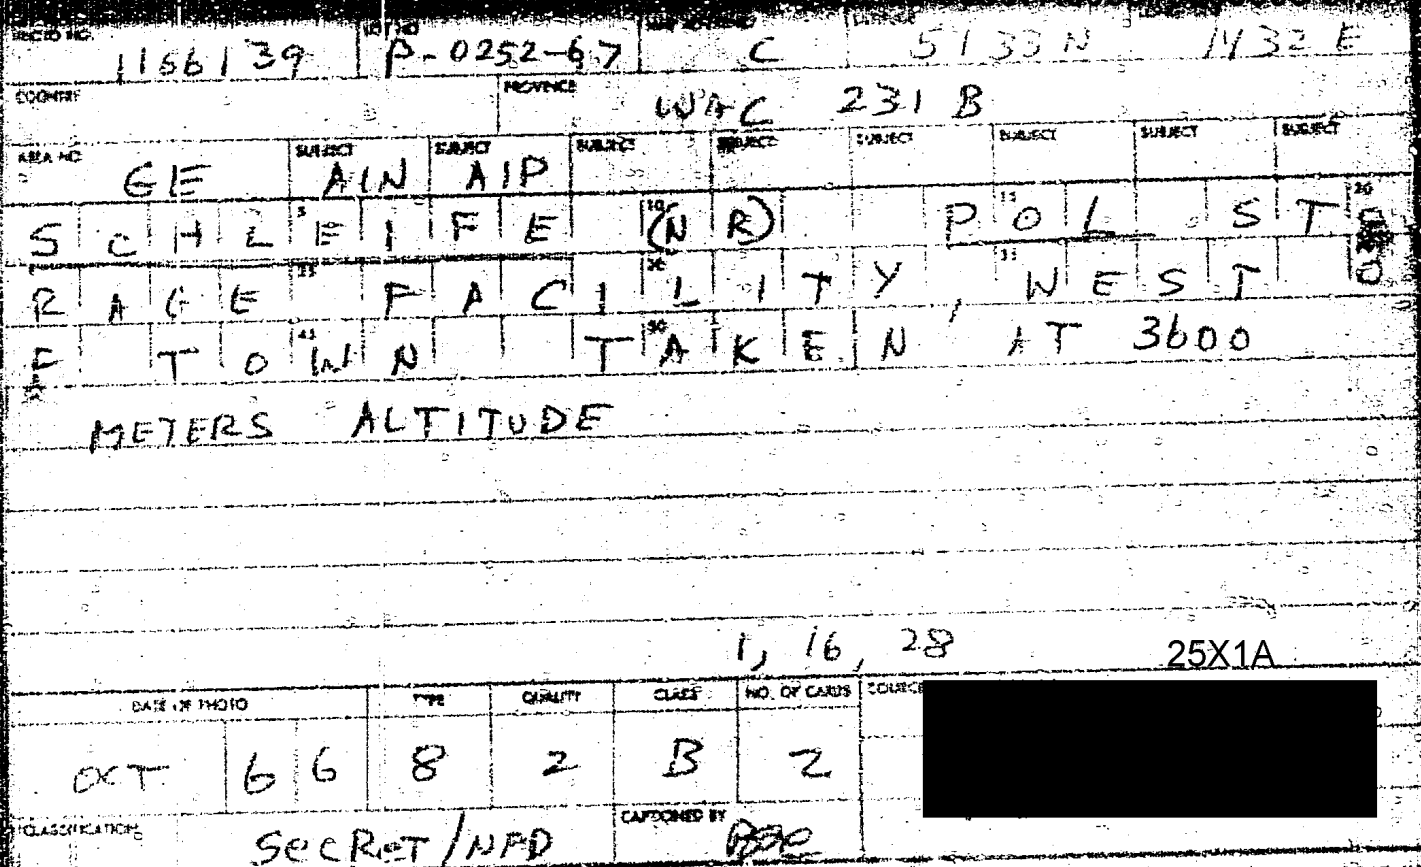 1166139 P-0252-67 C 5133N 1432E
COUNTRY PROVINCE WAC 231 B
AREA NO. GE SUBJECT AIN SUBJECT AIP SUBJECT SUBJECT SUBJECT SUBJECT SUBJECT SUBJECT
SCHLEIFE (NR) POL STO
RAGE FACILITY, WEST O
F TOWN TAKEN AT 3600
METERS ALTITUDE
1, 16, 28 25X1A
DATE OF PHOTO TYPE QUALITY CLASS NO. OF CARDS SOURCE
OCT 66 8 2 B 2
CLASSIFICATION SECRET/NFD CAPTIONED BY